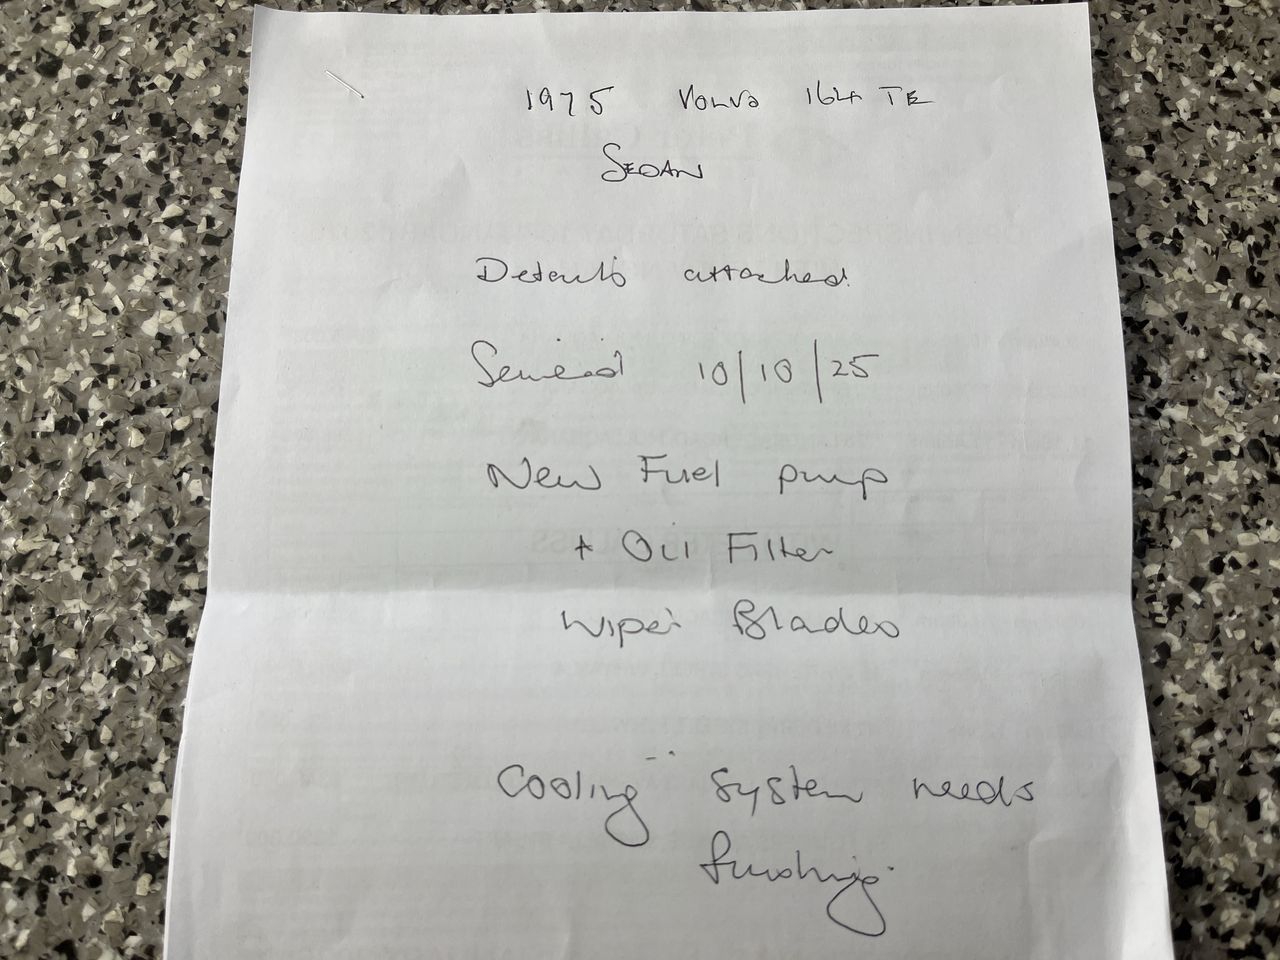 1975 Volvo 164 TE
SEDAN
Details attached
Serviced 10/10/25
New Fuel pump
+ Oil Filter
Wiper Blades
Cooling System needs
flushing